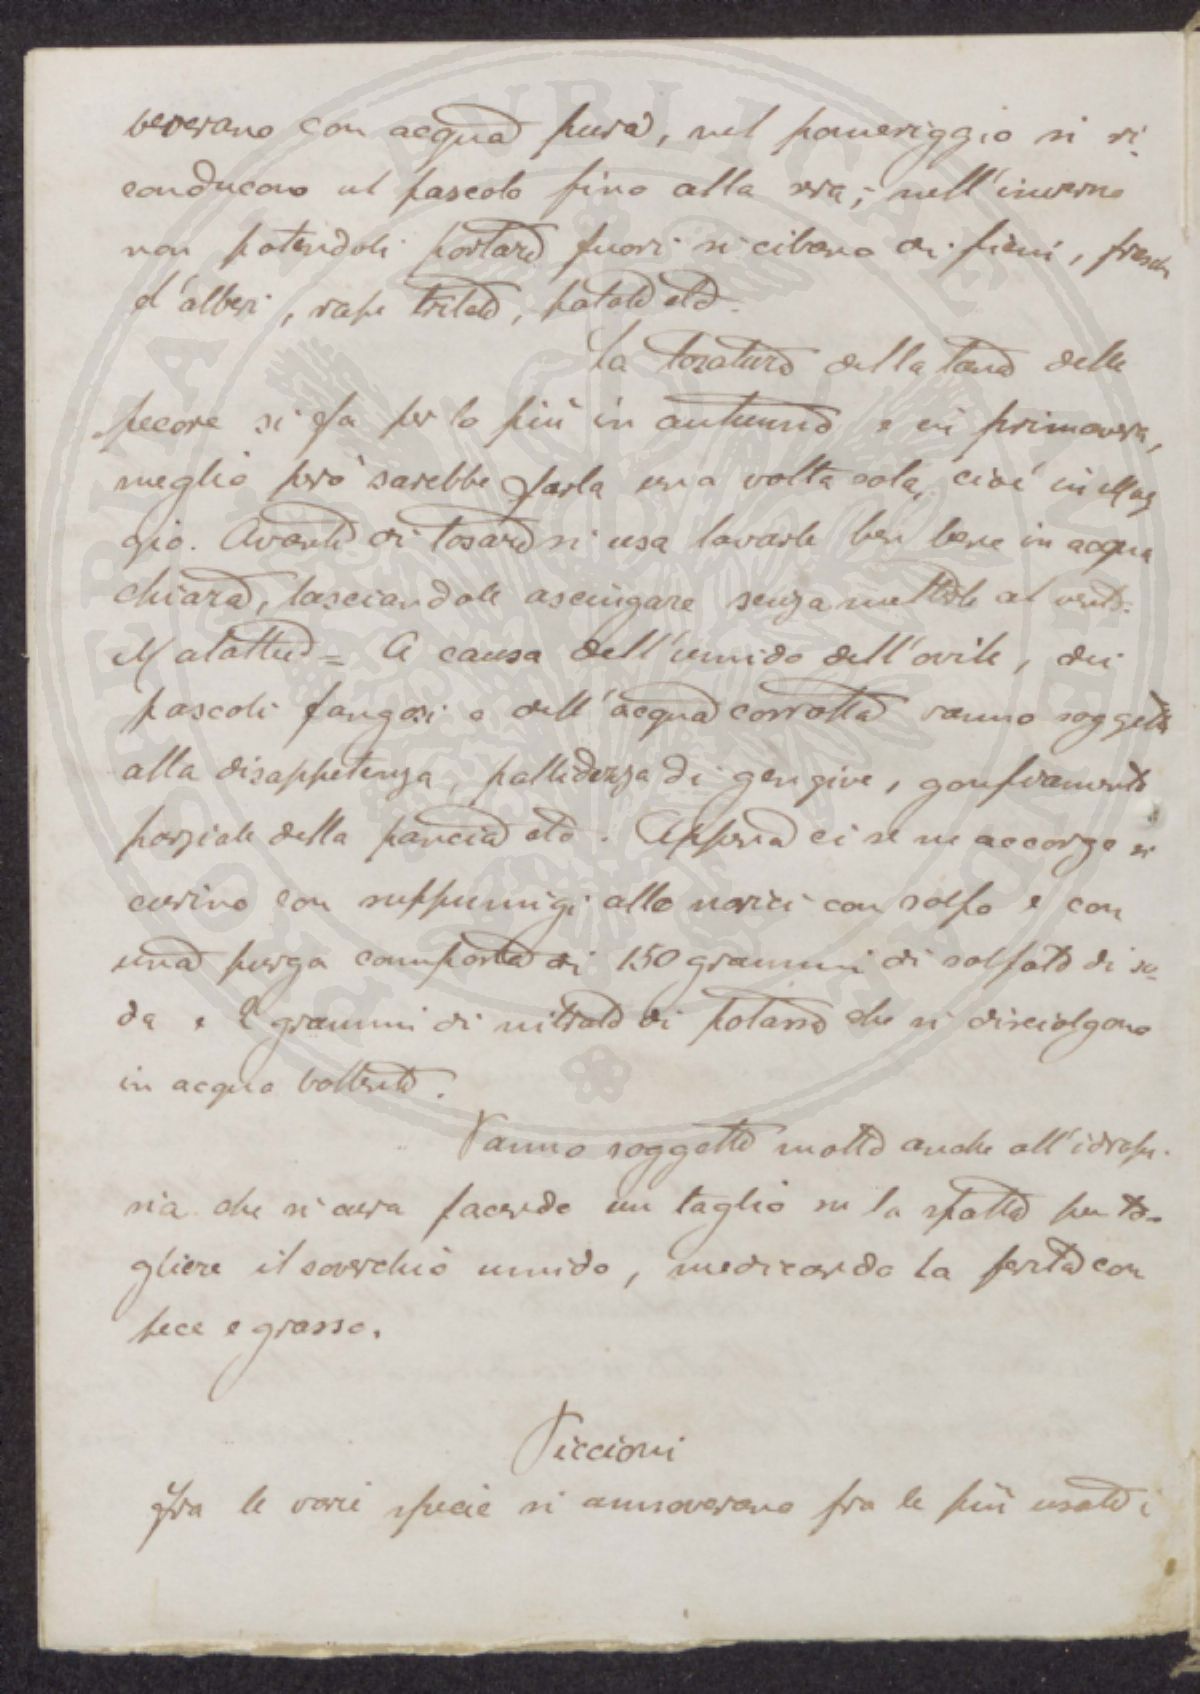 beverano con acqua pura, nel pomeriggio si ri-
conducono al pascolo fino alla sera; nell'inverno
non potendoli portare fuori si cibano di fieni, frasche
d'alberi, rape tritate, patate etc.
La tosatura della lana delle
pecore si fa per lo più in autunno e in primavera,
meglio però sarebbe farla una volta sola, cioè in Mag
gio. Avanti di tosare si usa lavarle ben bene in acqua
chiara, lasciandole asciugare senza metterle al vento.
Malattie = A causa dell'umido dell'ovile, dei
pascoli fangosi e dell'acqua corrotta vanno soggette
alla disappetenza, pallidezza di gengive, gonfiamento
parziale della pancia etc. Appena ci se ne accorge si
curino con suffumigi alle narici con solfo e con
una purga composta di 150 grammi di solfato di so-
da e 2 grammi di nitrato di potassa che si disciolgono
in acqua bollente.
Vanno soggette molto anche all'idrope-
sia che si cura facendo un taglio su la spalla per to-
gliere il soverchio umido, medicando la ferita con
pece e grasso.
Piccioni
Fra le varie specie si annoverano fra le più usate i
SOPHERIANA PVBLICAE